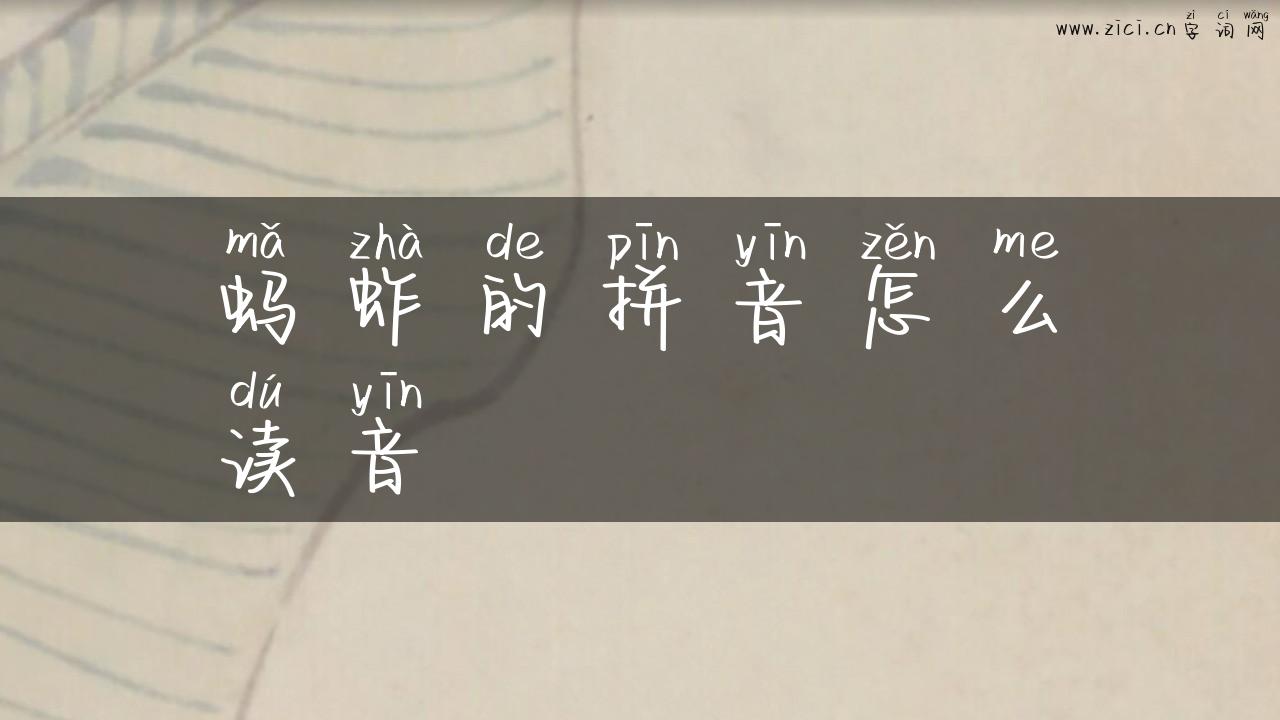 zì cí wǎng
www.zici.cn 字词网
mǎ zhà de pīn yīn zěn me
蚂蚱的拼音怎么
dú yīn
读音